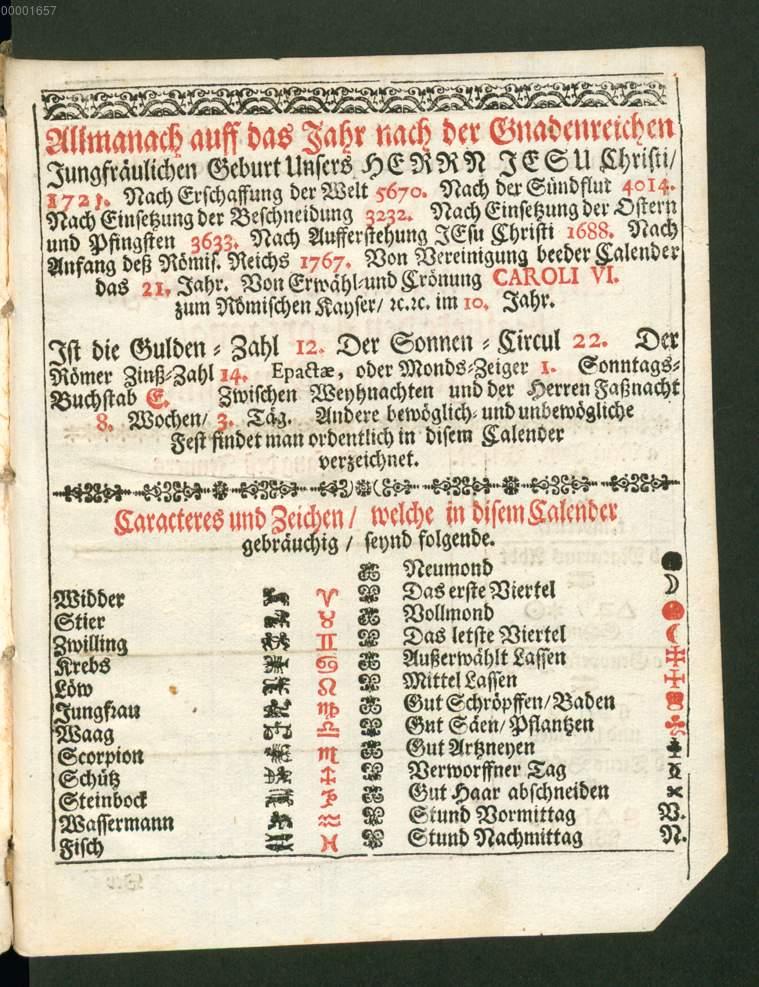 00001657
Allmanach auff das Jahr nach der Gnadenreichen
Jungfräulichen Geburt Unsers HERRN JESU Christi/
1721. Nach Erschaffung der Welt 5670. Nach der Sündflut 4014.
Nach Einsetzung der Beschneidung 3232. Nach Einsetzung der Ostern
und Pfingsten 3633. Nach Aufferstehung JEsu Christi 1688. Nach
Anfang deß Römis. Reichs 1767. Von Vereinigung beeder Calender
das 21. Jahr. Von Erwähl-und Crönung CAROLI VI.
zum Römischen Kayser/ ꝛc.ꝛc. im 10. Jahr.
Ist die Gulden-Zahl 12. Der Sonnen-Circul 22. Der
Römer Zinß-Zahl 14. Epactæ, oder Monds-Zeiger 1. Sonntags-
Buchstab E. Zwischen Weyhnachten und der Herren Faßnacht
8. Wochen/ 3. Täg. Andere bewöglich-und unbewögliche
Fest findet man ordentlich in disem Calender
verzeichnet.
Caracteres und Zeichen/ welche in disem Calender
gebräuchig/ seynd folgende.
Widder ♈
Stier ♉
Zwilling ♊
Krebs ♋
Löw ♌
Jungfrau ♍
Waag ♎
Scorpion ♏
Schütz ♐
Steinbock ♑
Wassermann ♒
Fisch ♓
Neumond
Das erste Viertel
Vollmond
Das letste Viertel
Außerwählt Lassen
Mittel Lassen
Gut Schröpffen/Baden
Gut Säen/Pflantzen
Gut Artzneyen
Verworffner Tag
Gut Haar abschneiden
Stund Vormittag V.
Stund Nachmittag N.